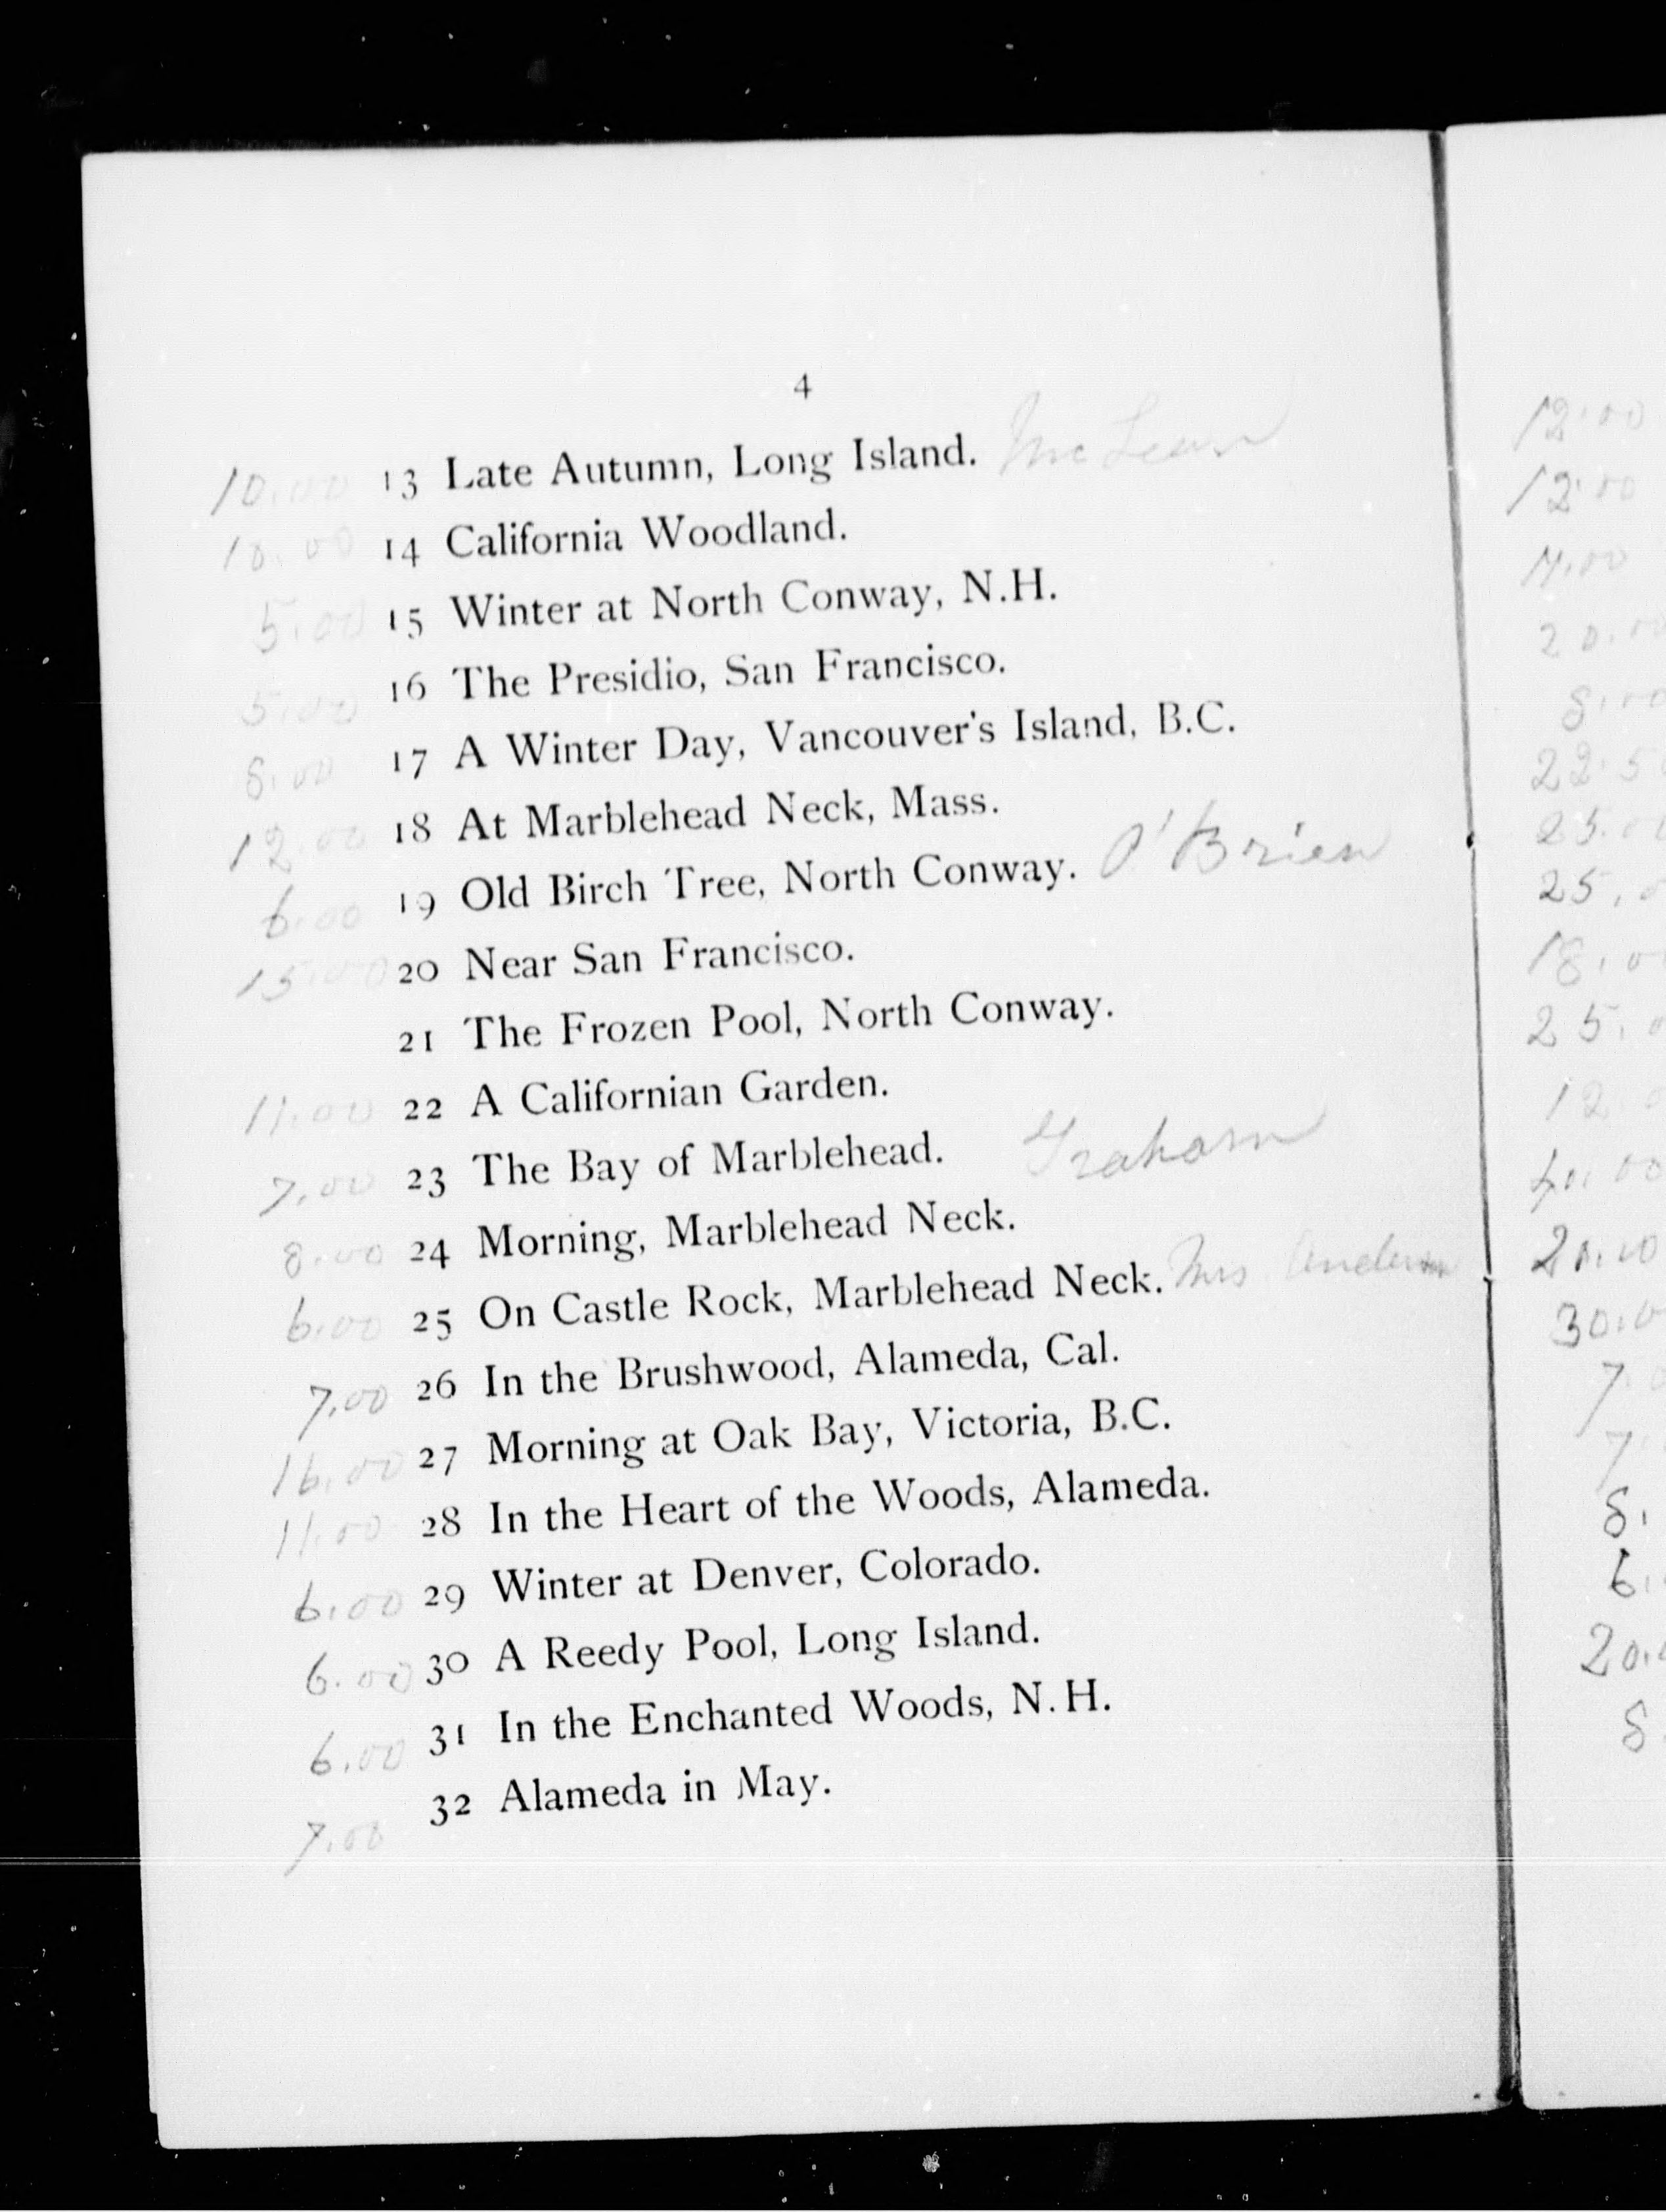 4
10.00 13 Late Autumn, Long Island. McLean
10.00 14 California Woodland.
5.00 15 Winter at North Conway, N.H.
5.00 16 The Presidio, San Francisco.
8.00 17 A Winter Day, Vancouver's Island, B.C.
12.00 18 At Marblehead Neck, Mass.
6.00 19 Old Birch Tree, North Conway. O'Brien
15.00 20 Near San Francisco.
21 The Frozen Pool, North Conway.
11.00 22 A Californian Garden.
7.00 23 The Bay of Marblehead. Graham
8.00 24 Morning, Marblehead Neck.
6.00 25 On Castle Rock, Marblehead Neck. Mrs
7.00 26 In the Brushwood, Alameda, Cal.
16.00 27 Morning at Oak Bay, Victoria, B.C.
11.00 28 In the Heart of the Woods, Alameda.
6.00 29 Winter at Denver, Colorado.
6.00 30 A Reedy Pool, Long Island.
6.00 31 In the Enchanted Woods, N. H.
7.00 32 Alameda in May.
12.00
12.00
20.00
8.00
22.5
25.0
25.0
18.0
25.0
12.0
20.00
30.0
7.0
7.
8.
6.
20.
8.